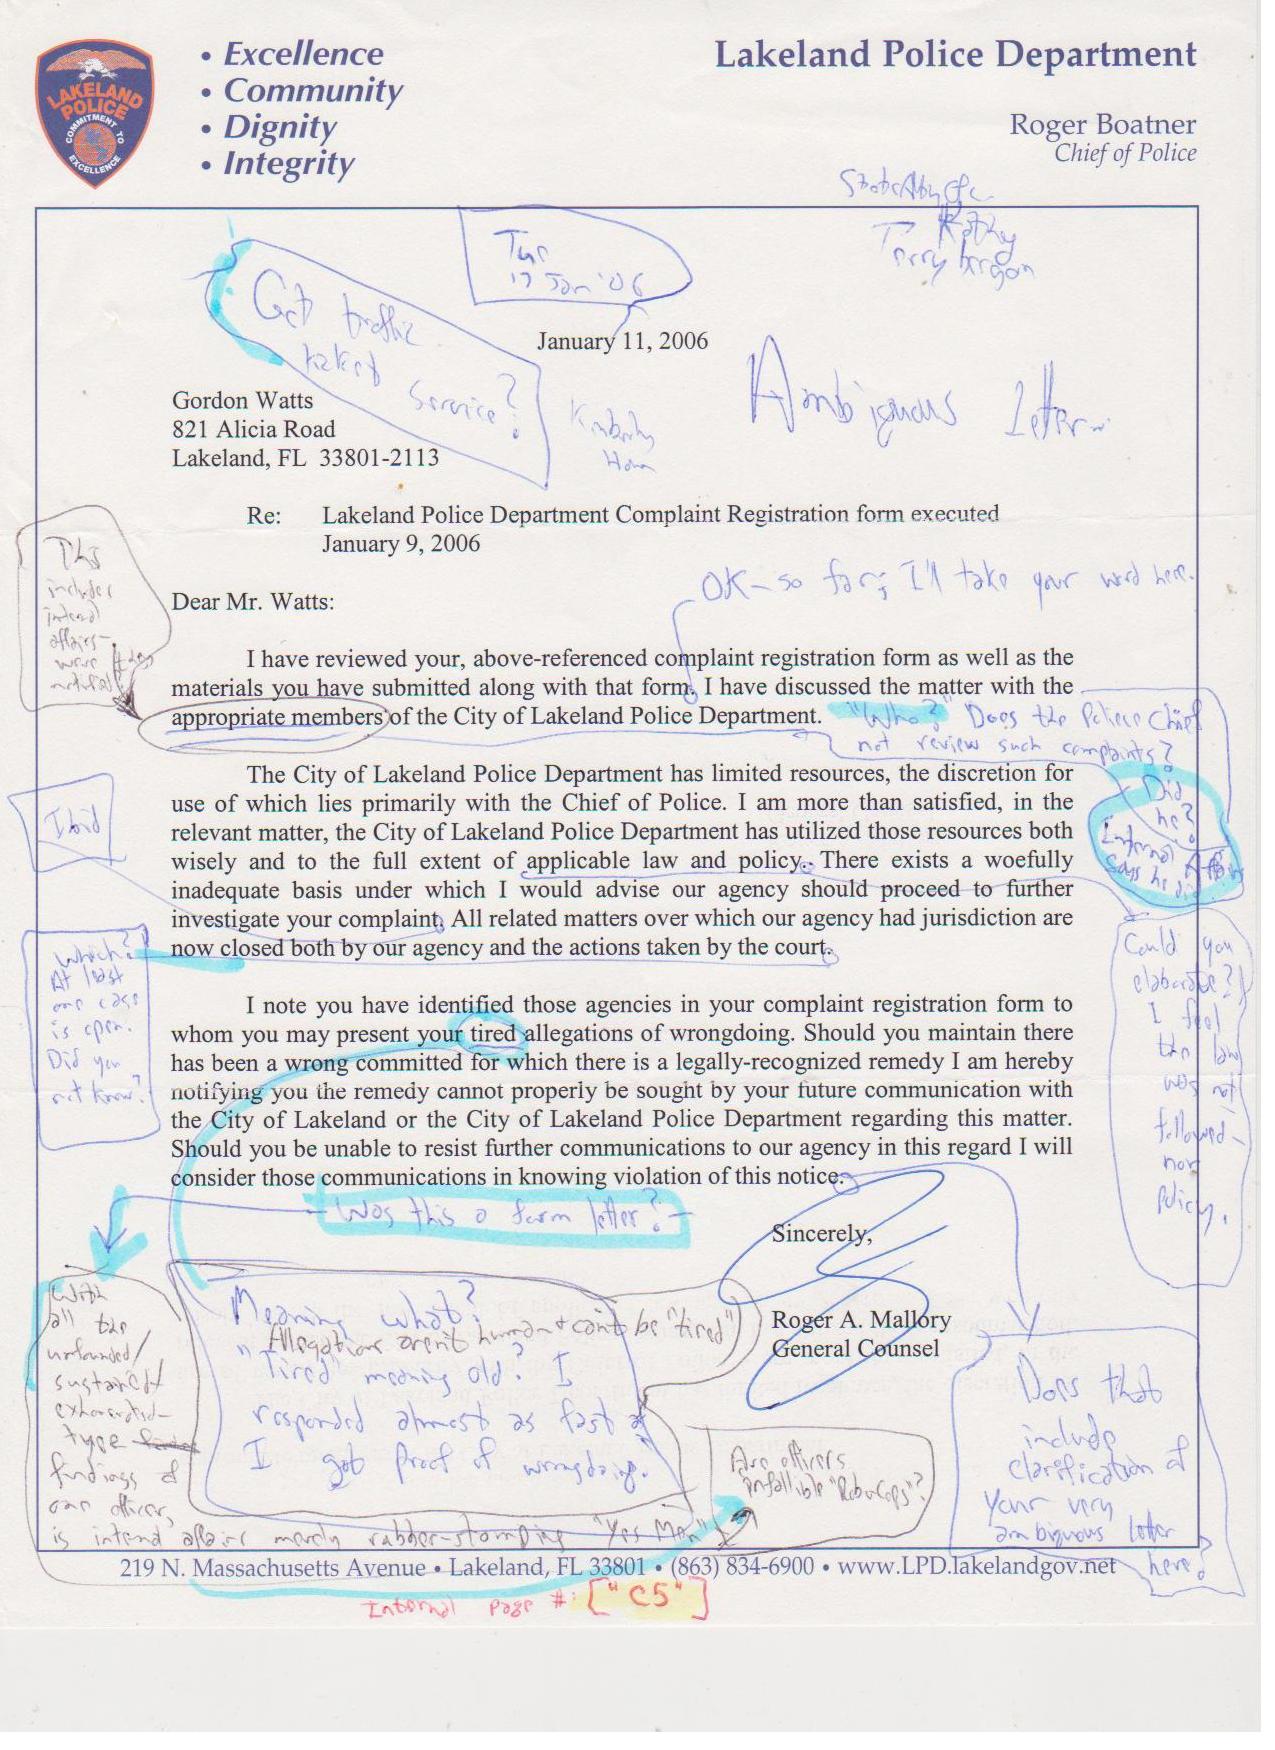 • Excellence
• Community
• Dignity
• Integrity
LAKELAND
POLICE
COMMITMENT TO
EXCELLENCE
Lakeland Police Department
Roger Boatner
Chief of Police
Kathy
Terry
Tue
17 Jan '06
Get traffic
ticket
service?
January 11, 2006
Ambiguous letter.
Gordon Watts
821 Alicia Road
Lakeland, FL 33801-2113
Kimberly
Re: Lakeland Police Department Complaint Registration form executed
January 9, 2006
This
includes
internal
affairs—
were they
notified?
OK—so far; I'll take your word here.
Dear Mr. Watts:
I have reviewed your, above-referenced complaint registration form as well as the
materials you have submitted along with that form. I have discussed the matter with the
appropriate members of the City of Lakeland Police Department.
"Who?" Does the Police Chief
not review such complaints?
Did
he?
Internal Affairs
says he did
The City of Lakeland Police Department has limited resources, the discretion for
use of which lies primarily with the Chief of Police. I am more than satisfied, in the
relevant matter, the City of Lakeland Police Department has utilized those resources both
wisely and to the full extent of applicable law and policy. There exists a woefully
inadequate basis under which I would advise our agency should proceed to further
investigate your complaint. All related matters over which our agency had jurisdiction are
now closed both by our agency and the actions taken by the court.
Ibid
Which?
At least
one case
is open.
Did you
not know?
Could you
elaborate?
I feel
the law
was not
followed—
nor
policy.
I note you have identified those agencies in your complaint registration form to
whom you may present your tired allegations of wrongdoing. Should you maintain there
has been a wrong committed for which there is a legally-recognized remedy I am hereby
notifying you the remedy cannot properly be sought by your future communication with
the City of Lakeland or the City of Lakeland Police Department regarding this matter.
Should you be unable to resist further communications to our agency in this regard I will
consider those communications in knowing violation of this notice.
—Was this a form letter?—
Sincerely,
Roger A. Mallory
General Counsel
With
all the
unfounded/
sustained/
exonerated—
type
findings of
our officers,
is internal affairs merely rubber-stamping "Yes Men"?
Meaning what?
Allegations aren't human & can't be "tired")
"Tired" meaning old? I
responded almost as fast as
I got proof of wrongdoing.
Are officers
infallible "RoboCops"?
Does that
include
clarification of
your very
ambiguous letter
here?
219 N. Massachusetts Avenue • Lakeland, FL 33801 • (863) 834-6900 • www.LPD.lakelandgov.net
Internal page #: ["C5"]